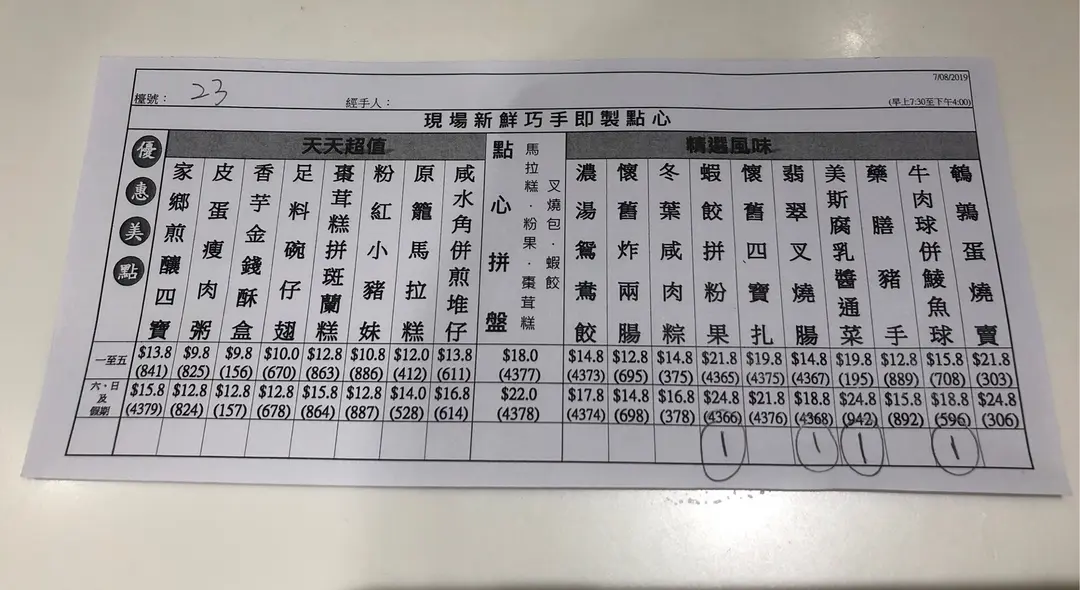 7/08/2019
檯號： 23 經手人： (早上7:30至下午4:00)
現場新鮮巧手即製點心
優惠美點
天天超值
家鄉煎釀四寶
皮蛋瘦肉粥
香芋金錢酥盒
足料碗仔翅
棗茸糕拼斑蘭糕
粉紅小豬妹
原籠馬拉糕
咸水角併煎堆仔
點心拼盤
馬拉糕·粉果·棗茸糕
叉燒包·蝦餃
精選風味
濃湯鴛鴦餃
懷舊炸兩腸
冬葉咸肉粽
蝦餃拼粉果
懷舊四寶扎
翡翠叉燒腸
美斯腐乳醬通菜
藥膳豬手
牛肉球併鯪魚球
鵪鶉蛋燒賣
一至五 $13.8 $9.8 $9.8 $10.0 $12.8 $10.8 $12.0 $13.8 $18.0 $14.8 $12.8 $14.8 $21.8 $19.8 $14.8 $19.8 $12.8 $15.8 $21.8
(841) (825) (156) (670) (863) (886) (412) (611) (4377) (4373) (695) (375) (4365) (4375) (4367) (195) (889) (708) (303)
六、日及假期 $15.8 $12.8 $12.8 $12.8 $15.8 $12.8 $14.0 $16.8 $22.0 $17.8 $14.8 $16.8 $24.8 $21.8 $18.8 $24.8 $15.8 $18.8 $24.8
(4379) (824) (157) (678) (864) (887) (528) (614) (4378) (4374) (698) (378) (4366) (4376) (4368) (942) (892) (596) (306)
1 1 1 1